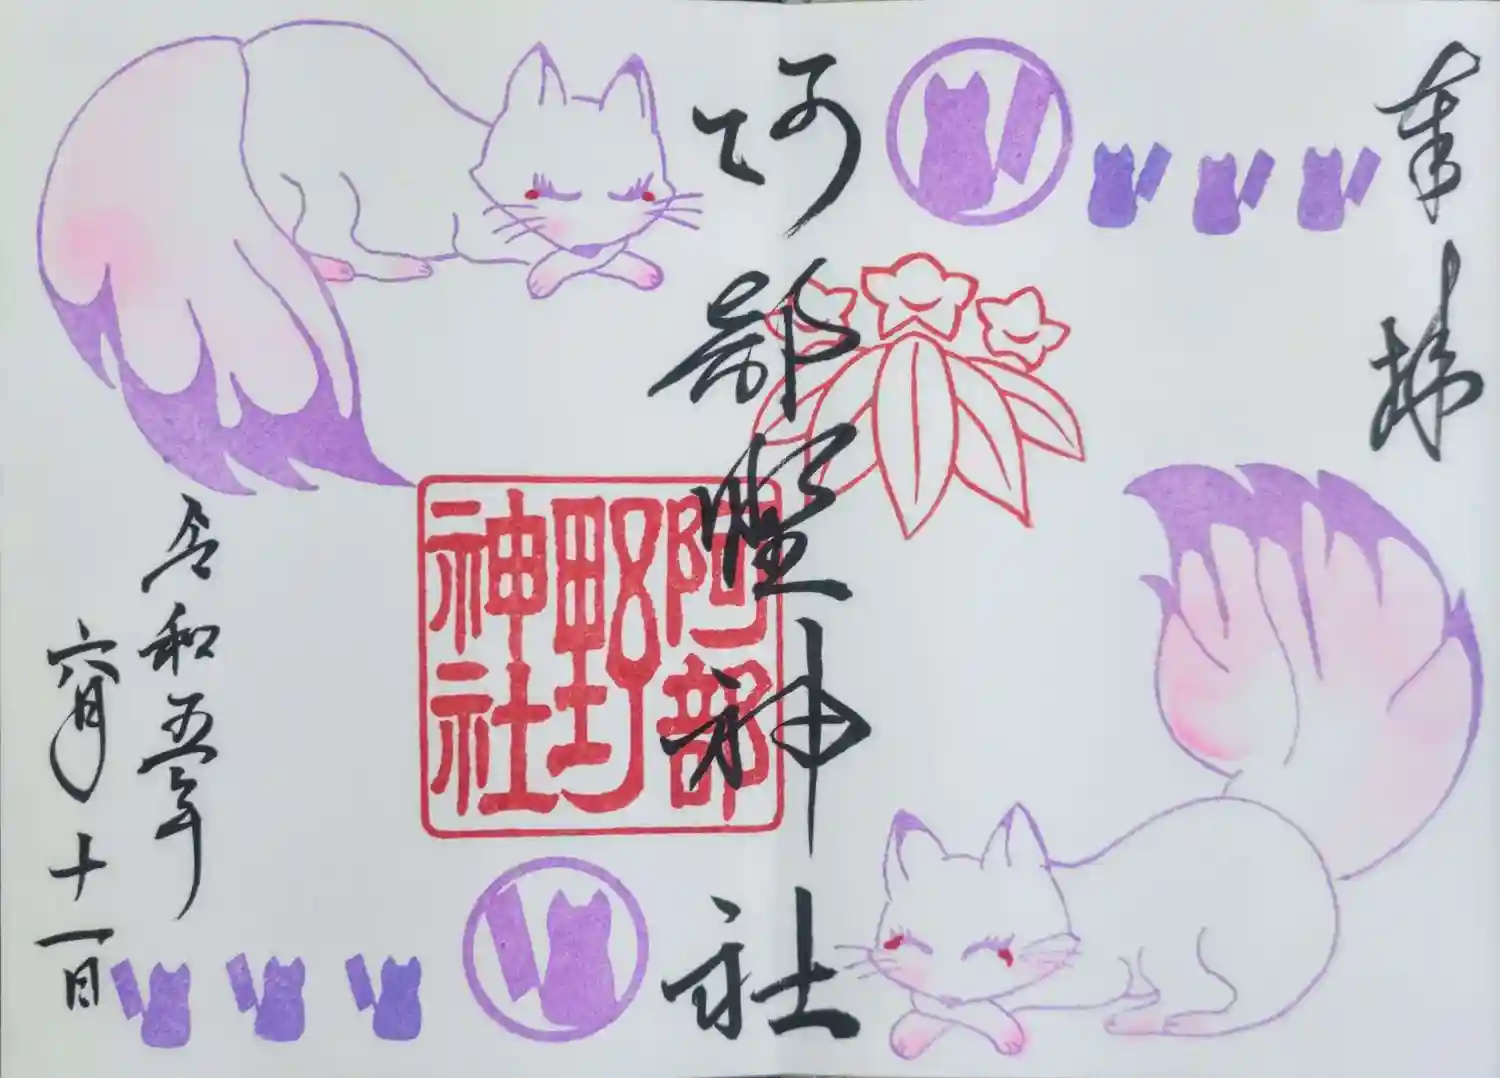 奉拝
阿部野神社
阿部
野
神社
令和五年
六月十一日